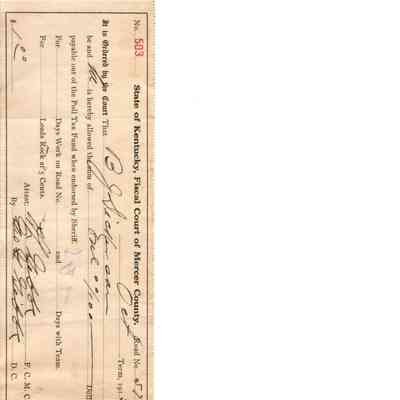 No. 503
State of Kentucky, Fiscal Court of Mercer County.
Road No. 57
Oct Term, 191
It is Ordered by the Court That B J
be and he is hereby allowed the sum of One 00/100 Doll
payable out of the Poll Tax Fund when endorsed by Sheriff.
For Days Work on Road No. and Days with Team.
For Loads Rock at 5 Cents.
$1.00
Attest: F. C. M. C
By D. C.